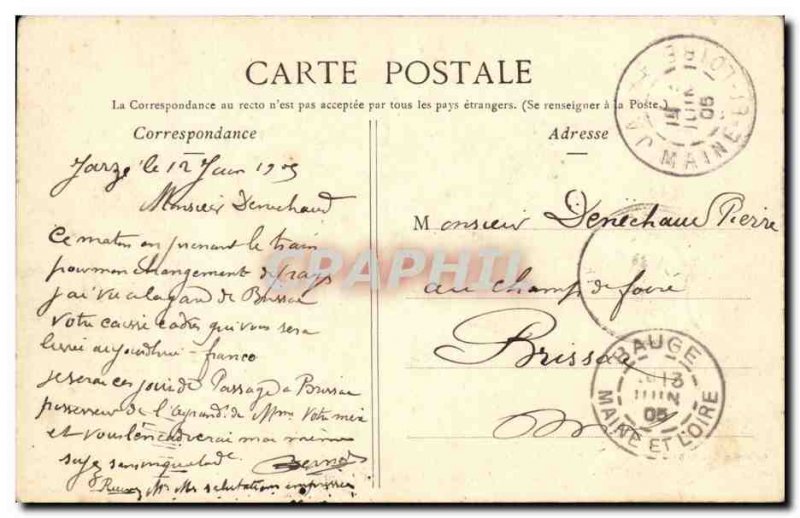 CARTE POSTALE
La Correspondance au recto n'est pas acceptée par tous les pays étrangers. (Se renseigner à la Poste.)
Correspondance
Jarzé le 12 Juin 1905
Monsieur Denechaud
Ce matin en prenant le train
pour mon changement de
j'ai vu a la gare de Brissac
votre caisse cadres qui vous sera
livrée aujourdhui franco
je serai ces jours de Passage a Brissac
possesseur de l'agrand. de Mme Votre mère
et vous l'encadrerai moi même
soyez sans inquietude.
Mr salutations empressées
Adresse
Monsieur Denechaud Pierre
au champ de foire
Brissac
CRAPHIL
MAINE
JUIN
05
BAUGÉ
13
JUIN
05
MAINE ET LOIRE